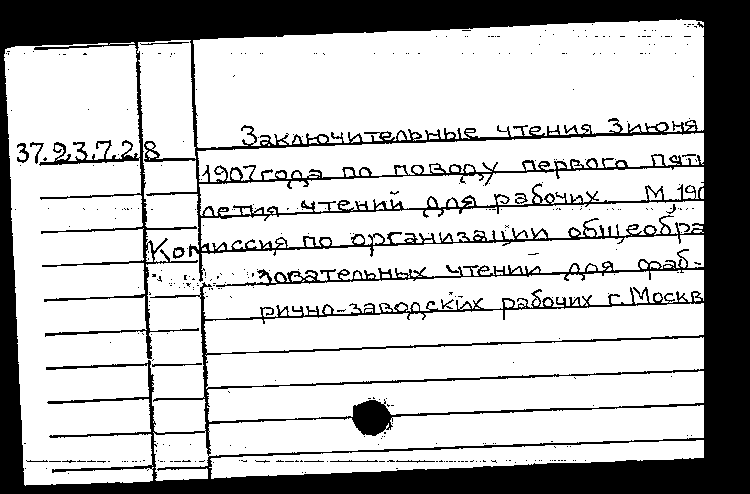 Заключительные чтения 3 июня
37.2.3.7.2.8
1907 года по поводу первого пяти
летия чтений для рабочих. М. 190
Комиссия по организации общеобра
зовательных чтений для фаб-
рично-заводских рабочих г. Москв